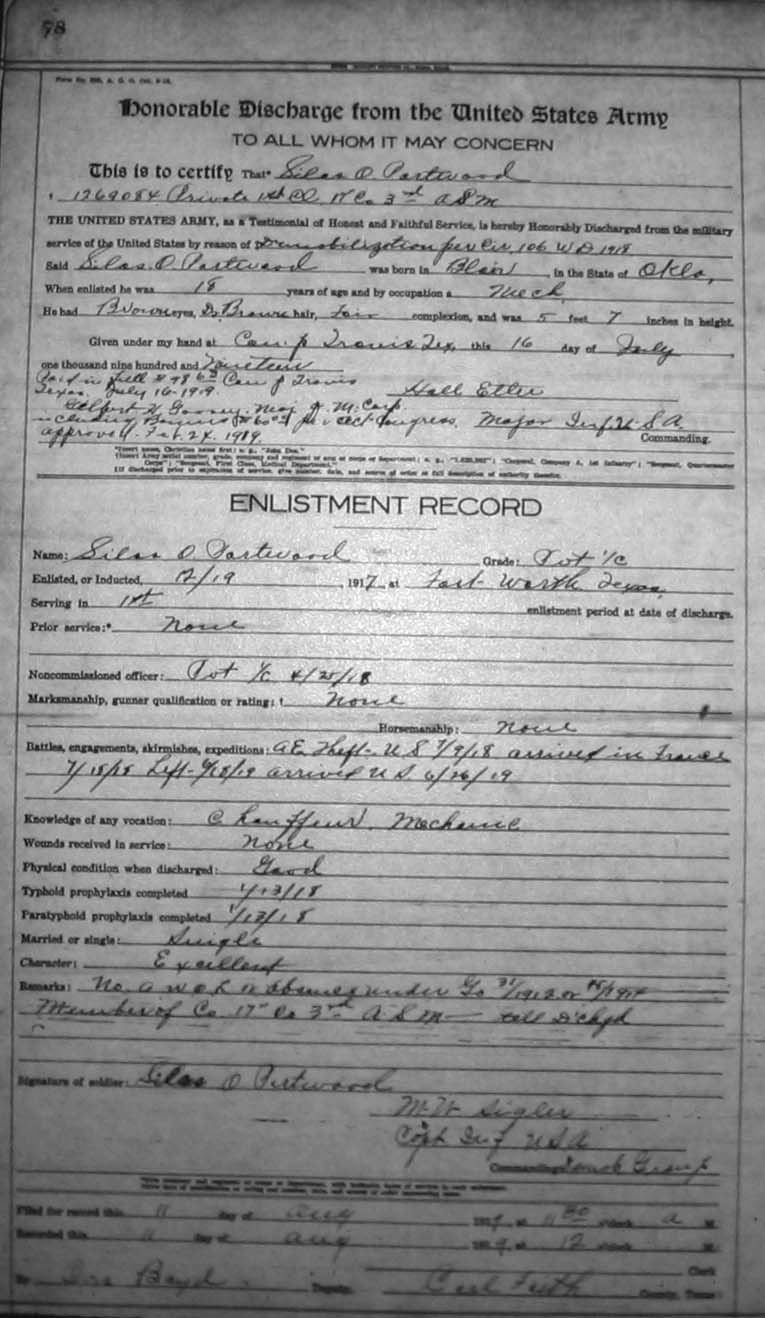 78
Honorable Discharge from the United States Army
TO ALL WHOM IT MAY CONCERN
This is to certify That* Silas O Partwood
1269084 Private 1st Cl 17 Co 3rd A S M
THE UNITED STATES ARMY, as a Testimonial of Honest and Faithful Service, is hereby Honorably Discharged from the military
service of the United States by reason of Demobilization per Cir. 106 W D 1918
Said Silas O Partwood was born in Blair, in the State of Okla,
When enlisted he was 18 years of age and by occupation a Mech,
He had Brown eyes, D Brown hair, Fair complexion, and was 5 feet 7 inches in height.
Given under my hand at Camp Travis Tex, this 16 day of July,
one thousand nine hundred and Nineteen
Paid in full $ 98 Camp Travis
Texas, July 16-1919. Hall Etter
Maj Q. M. Corp
including Bonus $60 Act Congress, Major Inf. U S A.
approved Feb. 24, 1919. Commanding.
*Insert name, Christian name first; e. g., "John Doe."
ENLISTMENT RECORD
Name: Silas O Partwood Grade: Pvt 1/c
Enlisted, or Inducted, 12/19, 1917, at Fort Worth Texas,
Serving in 1st enlistment period at date of discharge.
Prior service:* None
Noncommissioned officer: Pvt 1/c 4/25/18
Marksmanship, gunner qualification or rating: † None
Horsemanship: None
Battles, engagements, skirmishes, expeditions: A E F left U S 7/9/18 arrived in France
7/18/18 Left 6/18/19 arrived U S. 6/26/19
Knowledge of any vocation: Chauffeur. Mechanic
Wounds received in service: None
Physical condition when discharged: Good
Typhoid prophylaxis completed 1/13/18
Paratyphoid prophylaxis completed 1/13/18
Married or single: Single
Character: Excellent
Remarks: No A W O L or absence under Go 31/1912 or 45/1914
Member of Co 17 Co 3rd A S M till Dchgd
Signature of soldier: Silas O Partwood
M. W Sigler
Capt Inf U S A
Commanding Group
Filed for record this 11 day of Aug 1919, at 11 30 o'clock a M.
Recorded this 11 day of Aug 1919, at 12 o'clock M.
Clerk
By Boyd Deputy. Carl County, Texas